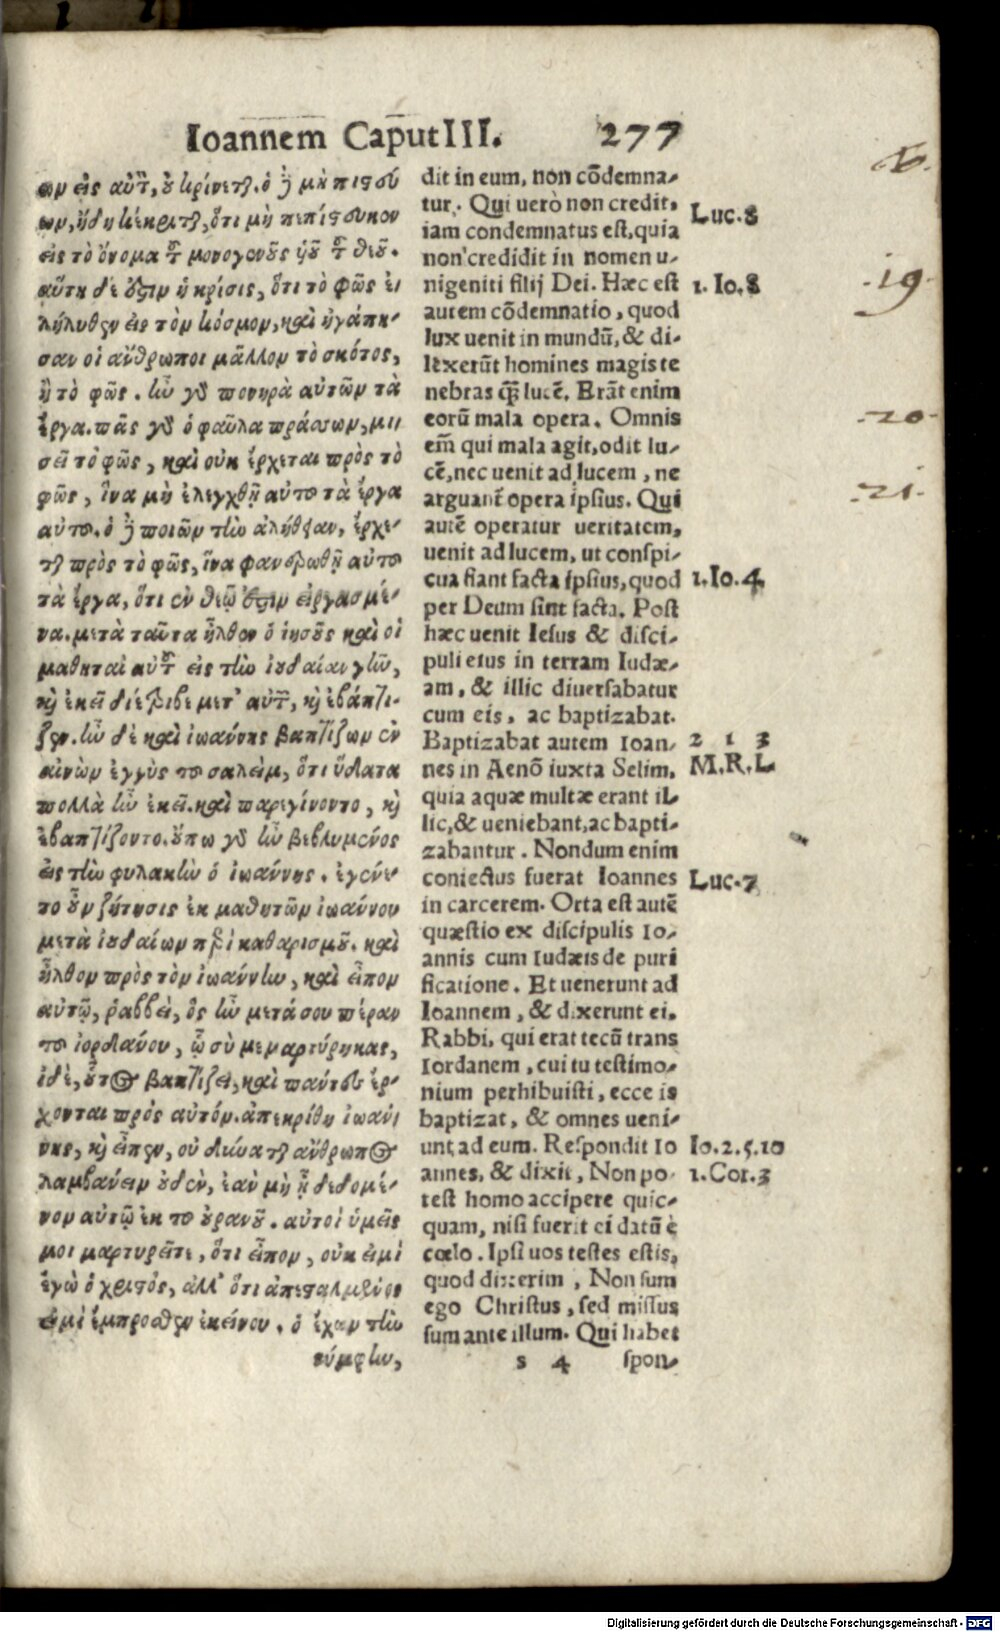 Ioannem Caput III. 277
ων εἰς αὐτ̃, ȣ̓ κρίνετ. ὁ ἢ μὴ πιστεύ
ων, ἤδη κέκριτ, ὅτι μὴ πεπίστευκεν
εἰς τὸ ὄνομα τ̃ μονογενοῦς ὑοῦ τ̃ θεοῦ.
αὕτη δέ ἐστιν ἡ κρίσις, ὅτι τὸ φῶς ἐ
λήλυθεν εἰς τὸν κόσμον, καὶ ἠγάπη-
σαν οἱ ἄνθρωποι μᾶλλον τὸ σκότος,
ἢ τὸ φῶς. ἦν γὰρ πονηρὰ αὐτῶν τὰ
ἔργα. πᾶς γὰρ ὁ φαῦλα πράσσων, μι
σεῖ τὸ φῶς, καὶ οὐκ ἔρχεται πρὸς τὸ
φῶς, ἵνα μὴ ἐλεγχθῇ αὐτοῦ τὰ ἔργα
αὐτοῦ. ὁ δὲ ποιῶν τὴν ἀλήθειαν, ἔρχε-
τ πρὸς τὸ φῶς, ἵνα φανερωθῇ αὐτοῦ
τὰ ἔργα, ὅτι ἐν θεῷ ἐστιν εἰργασμέ-
να. μετὰ ταῦτα ἦλθεν ὁ ἰησοῦς καὶ οἱ
μαθηταὶ αὐτ̃ εἰς τὴν ἰουδαίαν γῆν,
κ̀ ἐκεῖ διέτριβε μετ' αὐτ̃, κ̀ ἐβάπτι-
ζεν. ἦν δὲ καὶ ἰωάννης βαπτίζων ἐν
αἰνὼν ἐγγὺς τοῦ σαλεὶμ, ὅτι ὕδατα
πολλὰ ἦν ἐκεῖ. καὶ παρεγίνοντο, κ̀
ἐβαπτίζοντο. οὔπω γὰρ ἦν βεβλημένος
εἰς τὴν φυλακὴν ὁ ἰωάννης. ἐγένε-
το οὖν ζήτησις ἐκ μαθητῶν ἰωάννου
μετὰ ἰουδαίων περὶ καθαρισμοῦ. καὶ
ἦλθον πρὸς τὸν ἰωάννην, καὶ εἶπον
αὐτῷ, ῥαββεὶ, ὃς ἦν μετά σου πέραν
τοῦ ἰορδάνου, ᾧ σὺ μεμαρτύρηκας,
ἰδὲ, οὗτος βαπτίζει, καὶ πάντες ἔρ-
χονται πρὸς αὐτόν. ἀπεκρίθη ἰωάν
νης, κ̀ εἶπεν, οὐ δύνατ ἄνθρωπος
λαμβάνειν οὐδὲν, ἐὰν μὴ ᾖ δεδομέ-
νον αὐτῷ ἐκ τοῦ οὐρανοῦ. αὐτοὶ ὑμεῖς
μοι μαρτυρεῖτε, ὅτι εἶπον, οὐκ εἰμὶ
ἐγὼ ὁ χριστὸς, ἀλλ' ὅτι ἀπεσταλμένος
εἰμὶ ἔμπροσθεν ἐκείνου. ὁ ἔχων τὴν
νύμφην,
dit in eum, non cõdemna-
tur. Qui uerò non credit,
iam condemnatus est, quia
non credidit in nomen u-
nigeniti filij Dei. Hæc est
autem cõdemnatio, quod
lux uenit in mundũ, & di-
lexerũt homines magis te
nebras q̃ lucẽ. Erãt enim
eorũ mala opera. Omnis
em̃ qui mala agit, odit lu-
cẽ, nec uenit ad lucem, ne
arguant̃ opera ipsius. Qui
autẽ operatur ueritatem,
uenit ad lucem, ut conspi-
cua fiant facta ipsius, quod
per Deum sint facta. Post
hæc uenit Iesus & disci-
puli eius in terram Iudæ-
am, & illic diuersabatur
cum eis, ac baptizabat.
Baptizabat autem Ioan-
nes in Aenõ iuxta Selim,
quia aquæ multæ erant il-
lic, & ueniebant, ac bapti-
zabantur. Nondum enim
coniectus fuerat Ioannes
in carcerem. Orta est autẽ
quæstio ex discipulis Io-
annis cum Iudæis de puri
ficatione. Et uenerunt ad
Ioannem, & dixerunt ei.
Rabbi, qui erat tecũ trans
Iordanem, cui tu testimo-
nium perhibuisti, ecce is
baptizat, & omnes ueni-
unt ad eum. Respondit Io
annes, & dixit, Non po-
test homo accipere quic-
quam, nisi fuerit ei datũ è
cœlo. Ipsi uos testes estis,
quod dixerim, Non sum
ego Christus, sed missus
sum ante illum. Qui habet
s 4 spon-
Luc.8
1.Io.8
1.Io.4
2 1 3
M.R.L
Luc.7
Io.2.5.10
1.Cor.3
.19.
.20.
.21.
Digitalisierung gefördert durch die Deutsche Forschungsgemeinschaft - DFG